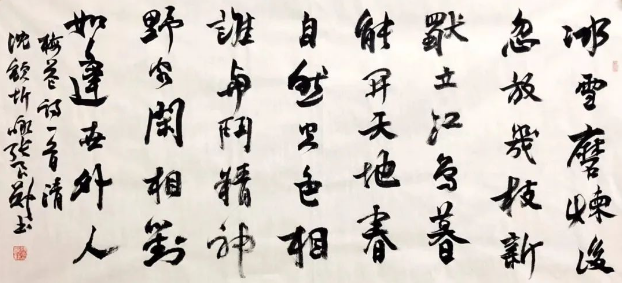 冰雪磨煉後
忽放幾枝新
獨立江暮
能開天地春
自然空色相
誰與鬥精神
野客閑相對
如逢世外人
梅花詩一首清
沈欽圻 張 書